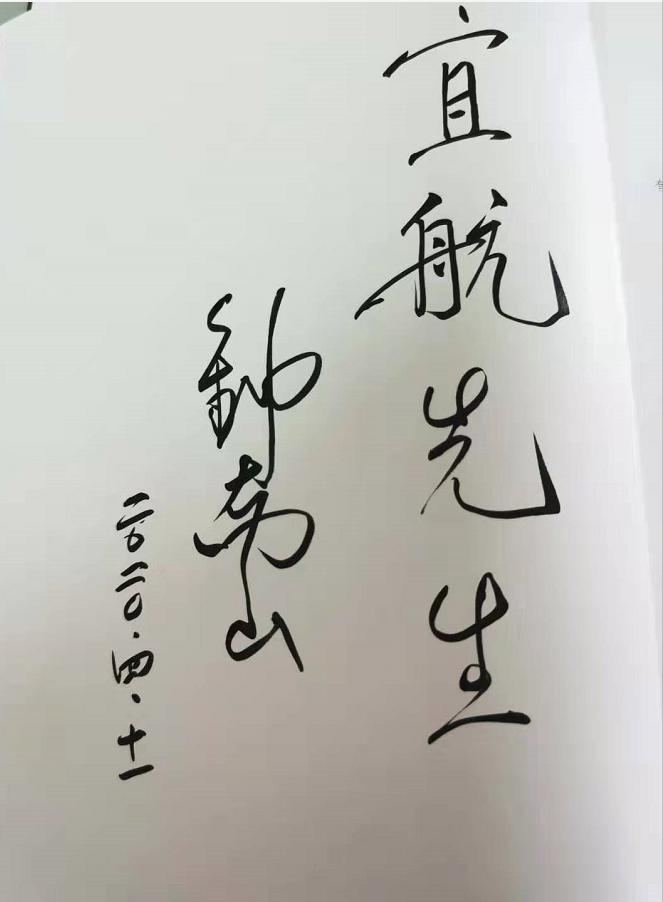 宜航先生
钟南山
二〇二〇·四·十一